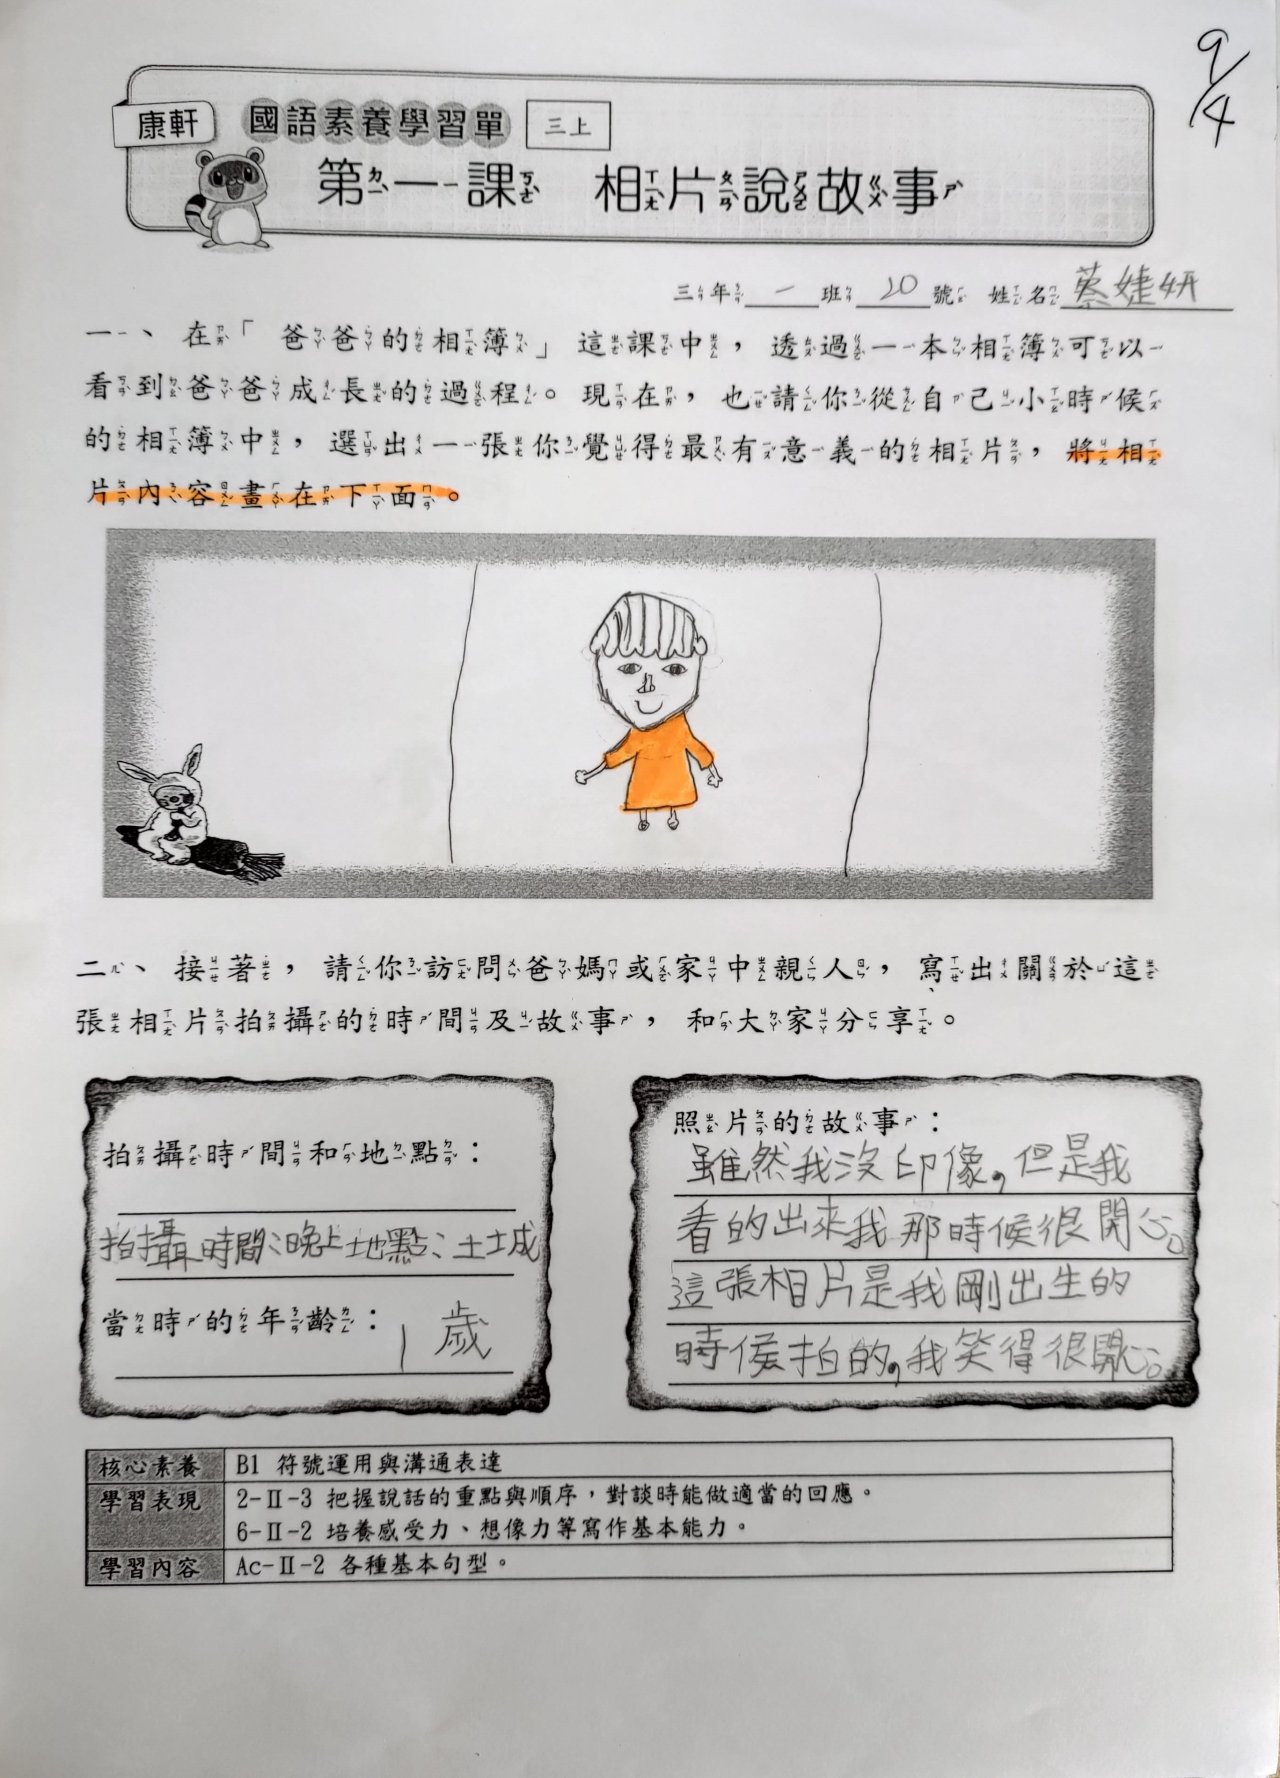 9/4
康軒 國語素養學習單 三上
第一課 相片說故事
三年一班20號 姓名蔡婕妍
一、在「爸爸的相簿」這課中，透過一本相簿可以
看到爸爸成長的過程。現在，也請你從自己小時候
的相簿中，選出一張你覺得最有意義的相片，將相
片內容畫在下面。
二、接著，請你訪問爸媽或家中親人，寫出關於這
張相片拍攝的時間及故事，和大家分享。
拍攝時間和地點：
拍攝時間：晚上地點：土城
當時的年齡：
1歲
照片的故事：
雖然我沒印像，但是我
看的出來我那時候很開心。
這張相片是我剛出生的
時侯拍的，我笑得很開心。
核心素養 B1 符號運用與溝通表達
學習表現 2-Ⅱ-3 把握說話的重點與順序，對談時能做適當的回應。
6-Ⅱ-2 培養感受力、想像力等寫作基本能力。
學習內容 Ac-Ⅱ-2 各種基本句型。